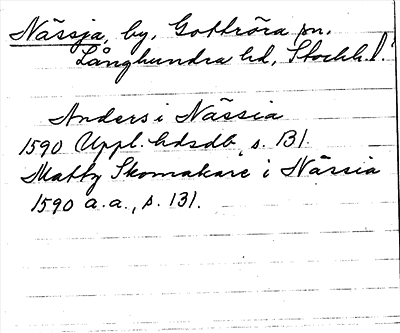 Nässja, by, Gottröra sn,
Långhundra hd, Stockh. l.
Anders i Nässia
1590 Uppl. hdsdb, s. 131.
Matty Skomakare i Nässia
1590 a.a., s. 131.